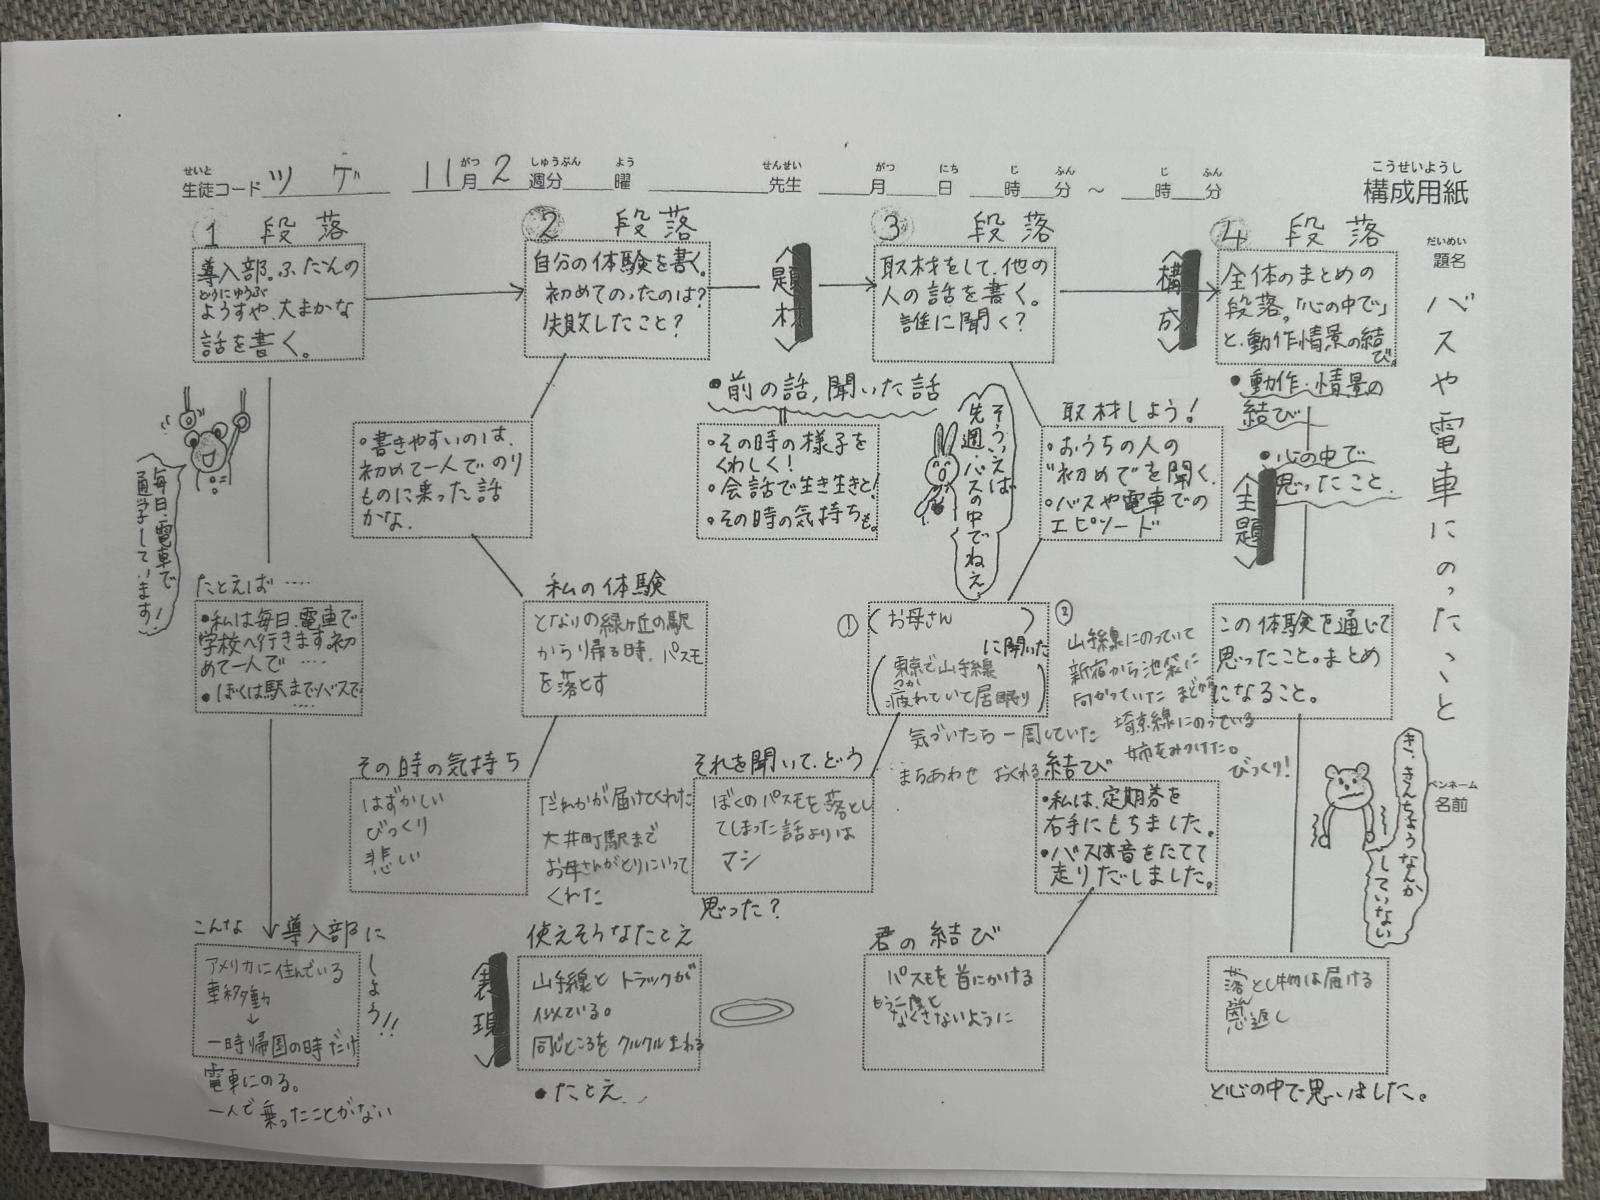 こうせいようし
構成用紙
せいと
生徒コード ツゲ
11月2週分 曜
がつ しゅうぶん よう
せんせい
先生
がつ にち じ ふん じ ふん
月 日 時 分 ～ 時 分
だいめい
題名
バスや電車にのったこと
ペンネーム
名前
1 段落
導入部。ふだんの
どうにゅうぶ
ようすや、大まかな
話を書く。
毎日、電車で
通学しています!
たとえば ‥‥
●私は毎日、電車で
学校へ行きます。初
めて一人で ‥‥
●ぼくは駅までバスで
‥‥
こんな導入部に
しよう!!
アメリカに住んでいる
車移動
↓
一時帰国の時だけ
電車にのる。
一人で乗ったことがない
2 段落
自分の体験を書く。
初めてのったのは?
失敗したこと?
・書きやすいのは、
初めて一人でのり
ものに乗った話
かな。
私の体験
となりの緑ヶ丘の駅
から帰る時、パスモ
を落とす
その時の気持ち
はずかしい
びっくり
悲しい
だれかが届けてくれた
大井町駅まで
お母さんがとりにいって
くれた
<表現>
使えそうなたとえ
山手線とトラックが
似ている。
同じところをクルクルまわる
●たとえ
<題材>
●前の話,聞いた話
・その時の様子を
くわしく!
・会話で生き生きと!
・その時の気持ちも。
3 段落
取材をして、他の
人の話を書く。
誰に聞く?
そういえば
先週、バスの中でねえ
取材しよう!
・おうちの人の
"初めて"を聞く。
・バスや電車での
エピソード
①
(お母さん)
に聞いた
(東京で山手線
つか
疲れていて居眠り)
気づいたら一周していた
まちあわせ おくれる
②
山手線にのっていて
新宿から池袋に
向かっていた まどから
埼京線にのっている
姉をみつけた。
びっくり!
それを聞いて、どう
ぼくのパスモを落とし
てしまった話よりは
マシ
思った?
結び
・私は、定期券を
右手にもちました。
・バスは音をたてて
走りだしました。
君の結び
パスモを首にかける
もう一度と
なくさないように
<構成>
4 段落
全体のまとめの
段落。「心の中で」
と、動作情景の結
び。
●動作・情景の
結び
●心の中で
思ったこと。
<主題>
この体験を通じて
思ったこと。まとめ
になること。
き、きんちょうなんか
していない
落とし物は届ける
恩返し
と心の中で思いました。